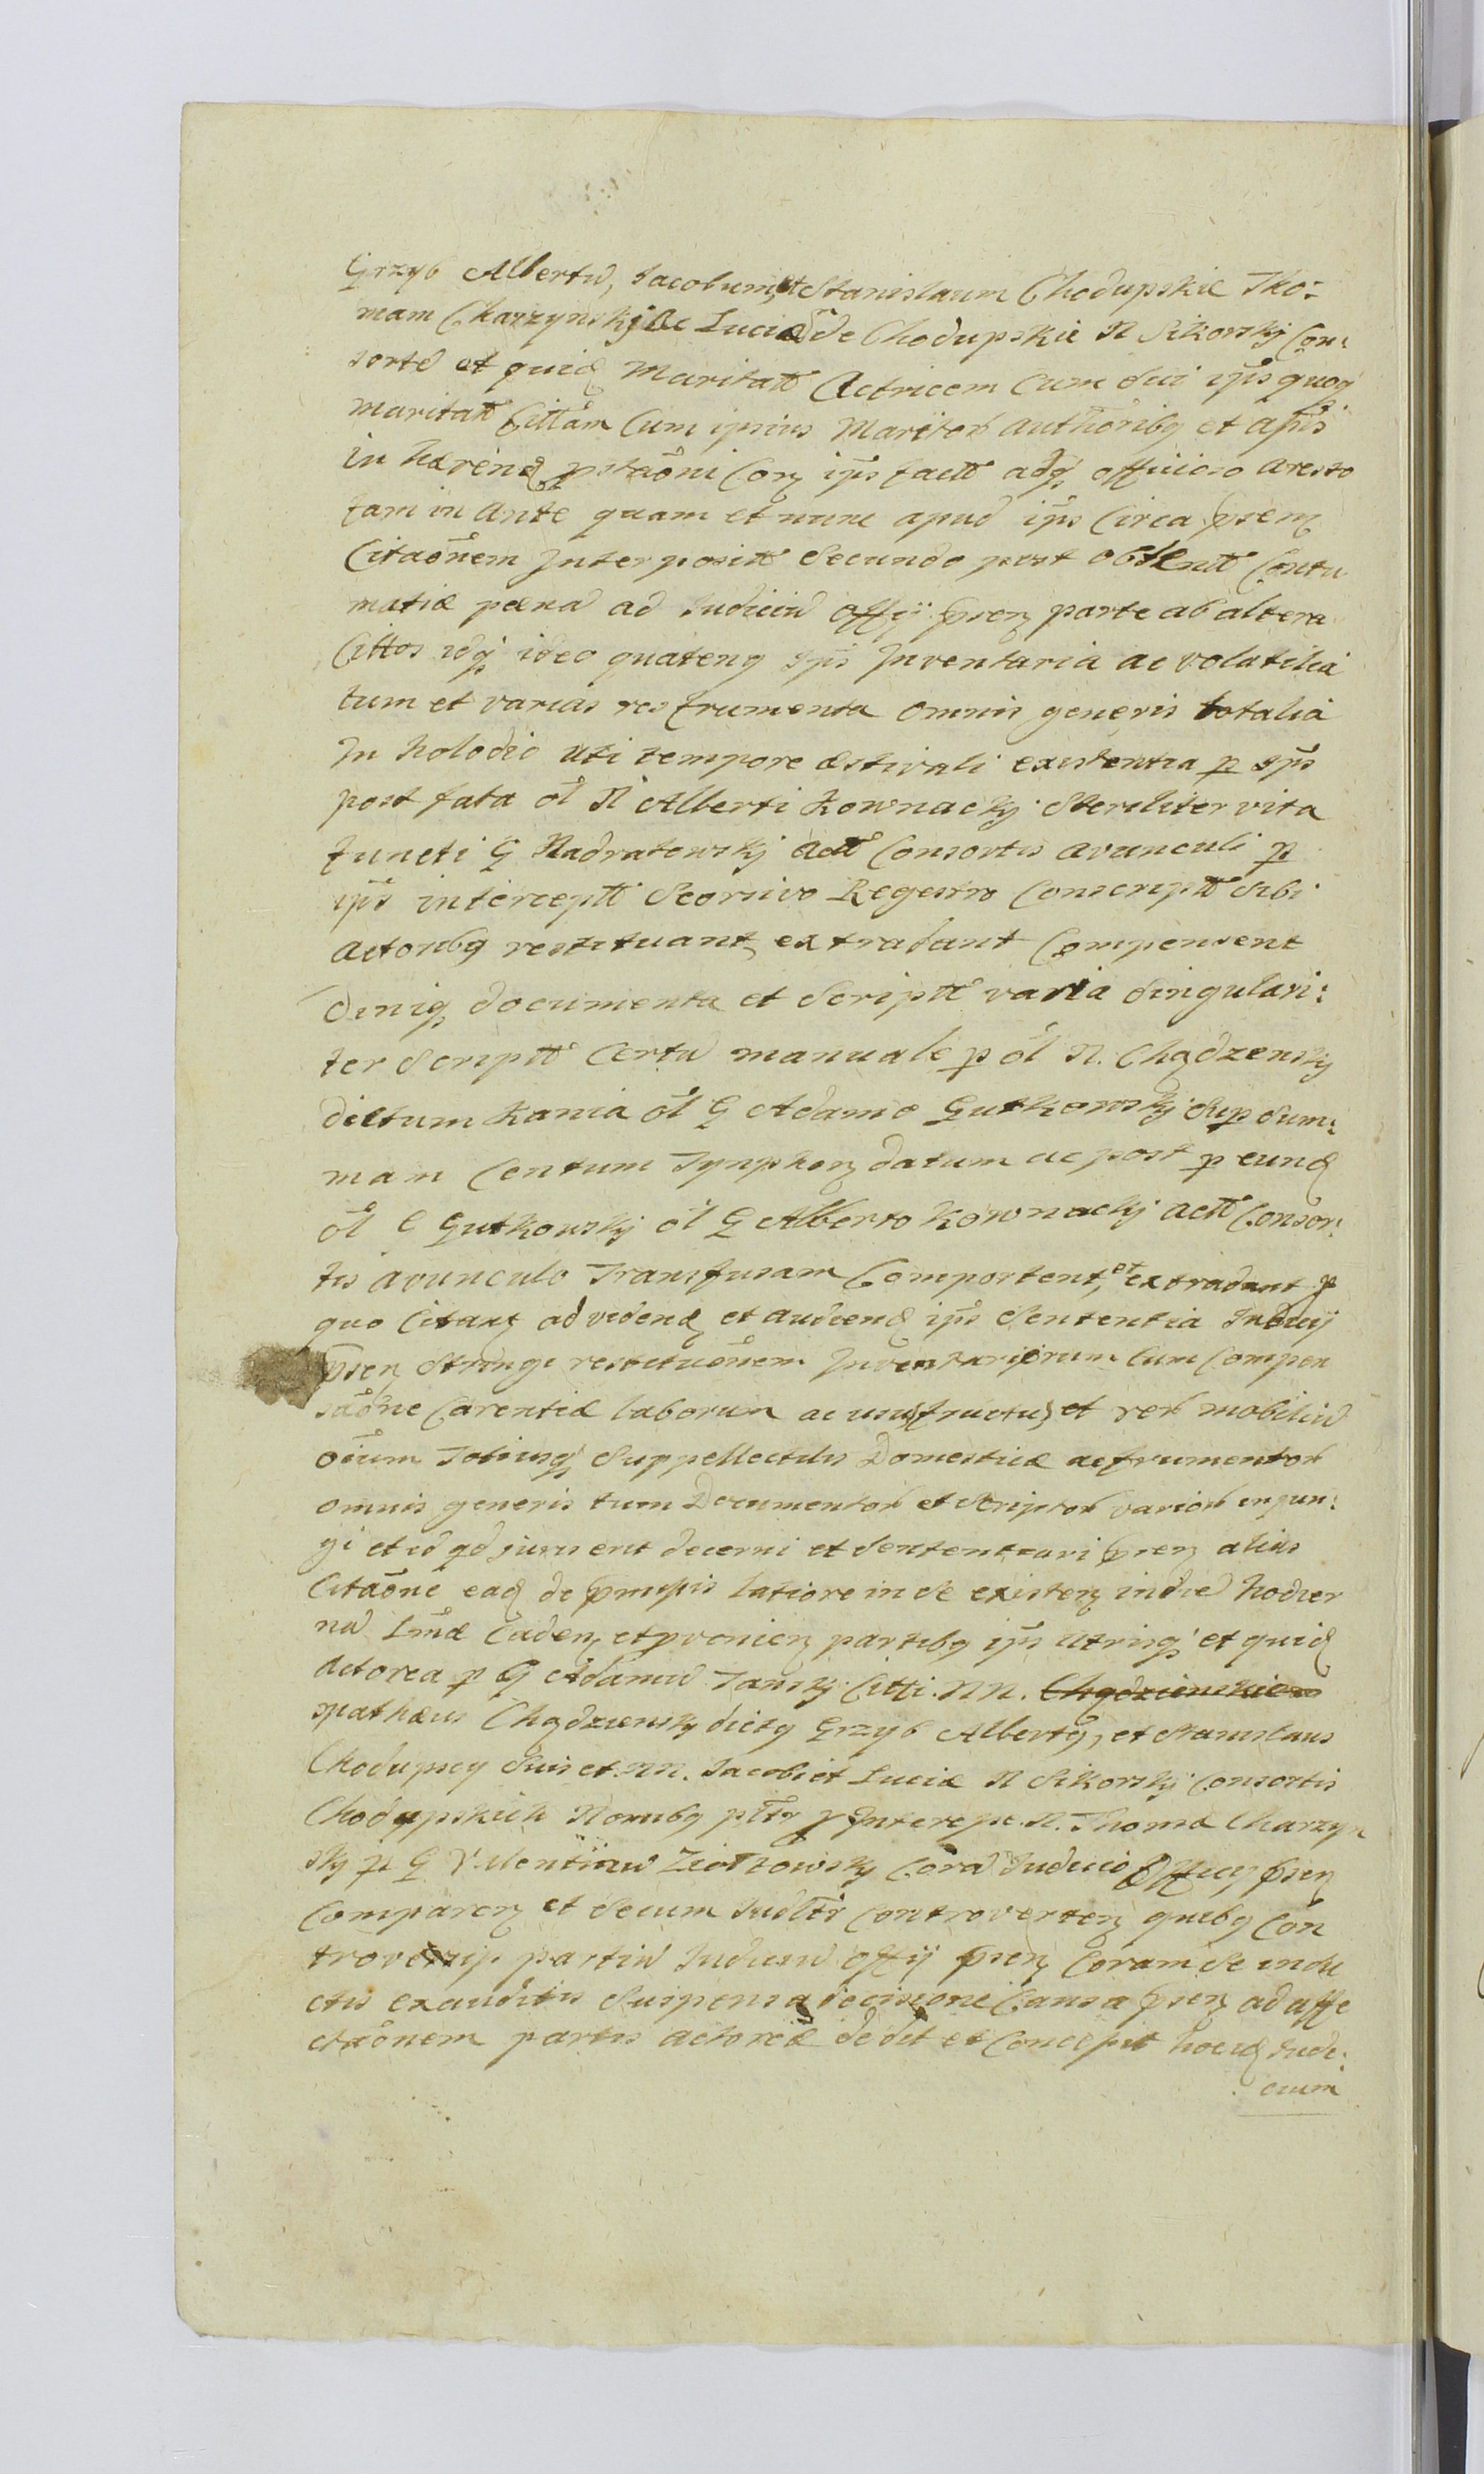 Grzyb Albertū, Jacobum, et Stanislaum Chodupskie Tho:
mam Charzynskj ac Luciā de Chodupskie N Sikorskj Con:
sortē et quidȝ Maritatā Actricem Cum sui ipīs quoqȝ
maritatā Cittām Cum ipsius Maritor authoribq et apīs
in hærendȝ pstaōni Corȝ ipīs factā adqȝ officioso aresto
tam in ante quam et nunc apud ipīs Circa psenȝ
Citaōnem Interpositō Secundo post obtentā Contu
matiæ pœnā ad Iudiciū Offij psenȝ parte ab altera
Cittos idqȝ ideo quatenq ipīs Inventaria ac volatilia
tum et varias res frumenta omnis generis totalia
In holodio uti tempore æstivali existentia p ipīs
post fata ōl N Alberti Kownackj Steriliter vita
functi G Nadratowskj Actā Consortis avunculi p
ipīs interceptā Seorsivo Regestro Conscriptā Sibi
actoribq restituant, extradant Compensent
deniqȝ documenta et Scriptā varia Singulari:
ter Scriptā Certū manuale p ōl N. Chądzenskj
dictum Kania ōl G Adamo Gutkowskj Sup Sum:
mam Centum Tynphorȝ datum ac post p eundȝ
ōl G Gutkowskj ōl G Alberto Kownackj actā Consor:
tis avunculo Transfusam Comportent, et extradant p
quo Citantȝ ad videndȝ et audiendȝ ipīs Sententia Iudicij
psenȝ Stringi restituōnem Inventariorum Cum Compen
saōne Carentiæ laborum ac ususfructus et rer mobiliū
oīum Totiusqȝ Suppellectilis Domesticæ ac frumentor
omnis generis tum Documentor et Scriptor varior injun:
gi et id qd juris erit decerni et Sententiari psenȝ alias
Citaōne eadȝ de pmissis latiore in se existenȝ in die hodier
nā Imæ Cadenȝ, et pvenienȝ partibq ipīs utrisqȝ et quidȝ
Actorea p G Adamū Janskj Citti NN. Chądzienskie
Mathæus Chądzienskj dictq Grzyb Albertq, et Stanislaus
Chodupscy Suis et NN. Jacobi et Luciæ N Sikorskj Consortis
Chodupskich Noībq plīr p Interepe N. Thoma Charzyn
skj p G Valentinū Ziołkowskj Corā Iudicio Officij psenȝ
Comparenȝ et Secum Iudltr Controvertenȝ quibq Con
troversijs partiū Iudiciū Offij psenȝ Coram Se indu
ctis exauditis Suspensa decisione Causa psenȝ ad affe
ctaōnem partis actoreæ dedit et Concepit hocidȝ Iudi:
cium